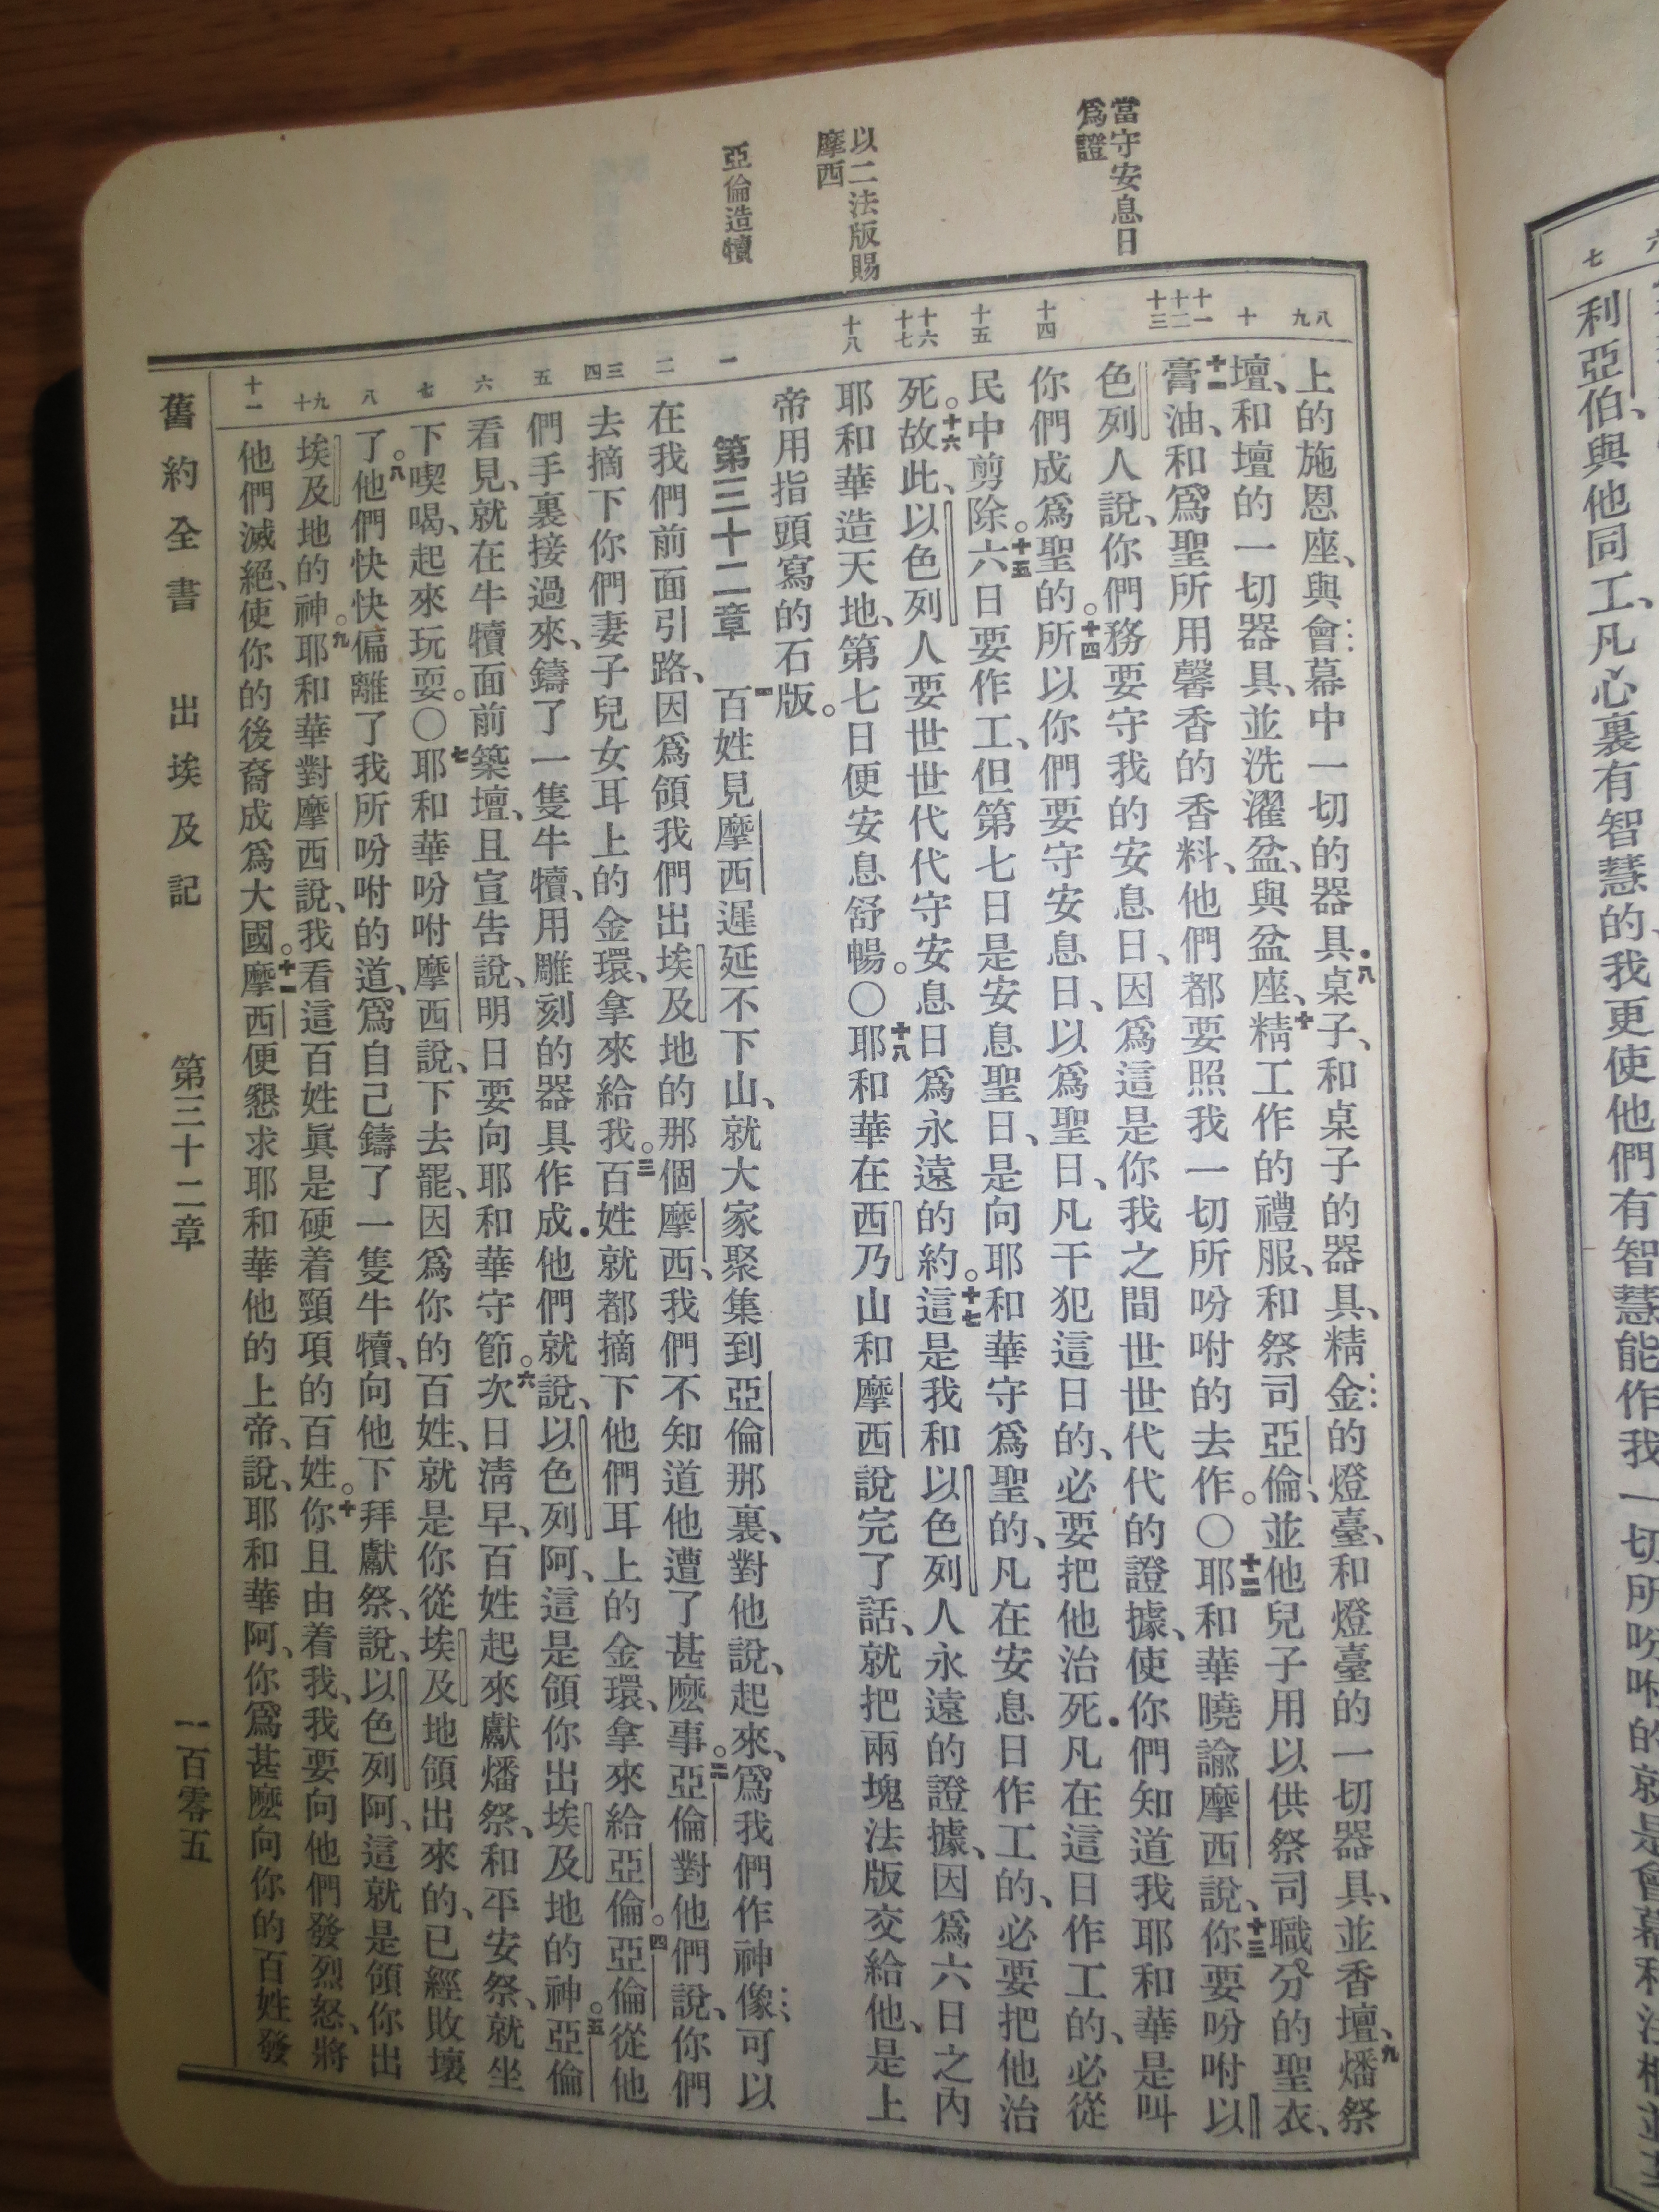 當守安息日
爲證
以二法版賜
摩西
亞倫造犢
八
九
十
十一
十二
十三
十四
十五
十六
十七
十八
一
二
三
四
五
六
七
八
九
十
十一
上的施恩座、與會幕中一切的器具．八桌子、和桌子的器具、精金的燈臺、和燈臺的一切器具、並香壇、九燔祭
壇、和壇的一切器具、並洗濯盆、與盆座、十精工作的禮服、和祭司亞倫、並他兒子用以供祭司職分的聖衣、
十一膏油、和爲聖所用馨香的香料、他們都要照我一切所吩咐的去作。〇十二耶和華曉諭摩西說、十三你要吩咐以
色列人說、你們務要守我的安息日、因爲這是你我之間世世代代的證據、使你們知道我耶和華是叫
你們成爲聖的。十四所以你們要守安息日、以爲聖日、凡干犯這日的、必要把他治死．凡在這日作工的、必從
民中剪除。十五六日要作工、但第七日是安息聖日、是向耶和華守爲聖的、凡在安息日作工的、必要把他治
死。十六故此、以色列人要世世代代守安息日爲永遠的約。十七這是我和以色列人永遠的證據、因爲六日之內
耶和華造天地、第七日便安息舒暢。〇十八耶和華在西乃山和摩西說完了話、就把兩塊法版交給他、是上
帝用指頭寫的石版。
第三十二章 一百姓見摩西遲延不下山、就大家聚集到亞倫那裏、對他說、起來、爲我們作神像、可以
在我們前面引路、因爲領我們出埃及地的那個摩西、我們不知道他遭了甚麽事。二亞倫對他們說、你們
去摘下你們妻子兒女耳上的金環、拿來給我。三百姓就都摘下他們耳上的金環、拿來給亞倫。四亞倫從他
們手裏接過來、鑄了一隻牛犢、用雕刻的器具作成．他們就說、以色列阿、這是領你出埃及地的神。五亞倫
看見、就在牛犢面前築壇、且宣告說、明日要向耶和華守節。六次日淸早、百姓起來獻燔祭、和平安祭、就坐
下喫喝、起來玩耍。〇七耶和華吩咐摩西說、下去罷、因爲你的百姓、就是你從埃及地領出來的、已經敗壞
了。八他們快快偏離了我所吩咐的道、爲自己鑄了一隻牛犢、向他下拜獻祭、說、以色列阿、這就是領你出
埃及地的神。九耶和華對摩西說、我看這百姓眞是硬着頸項的百姓。十你且由着我、我要向他們發烈怒、將
他們滅絕、使你的後裔成爲大國。十一摩西便懇求耶和華他的上帝、說、耶和華阿、你爲甚麽向你的百姓發
舊約全書 出埃及記 第三十二章 一百零五
七
利亞伯、與他同工、凡心裏有智慧的、我更使他們有智慧能作我一切所吩咐的就是會幕和法櫃並其